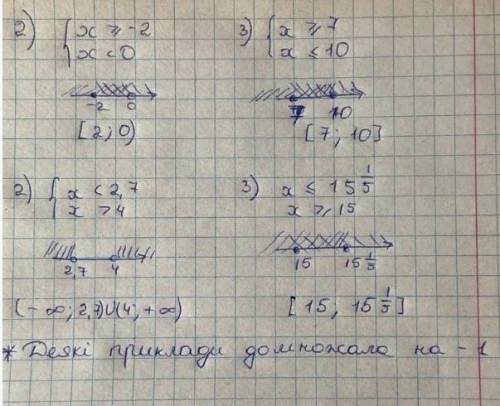 2) { x ≥ -2
x < 0
-2 0
[2; 0)
3) { x ≥ 7
x ≤ 10
7 10
[7; 10]
2) { x < 2,7
x > 4
2,7 4
(-∞; 2,7)U(4; +∞)
3) x ≤ 15 1/5
x ≥ 15
15 15 1/5
[15; 15 1/5]
* Деякі приклади домножала на -1